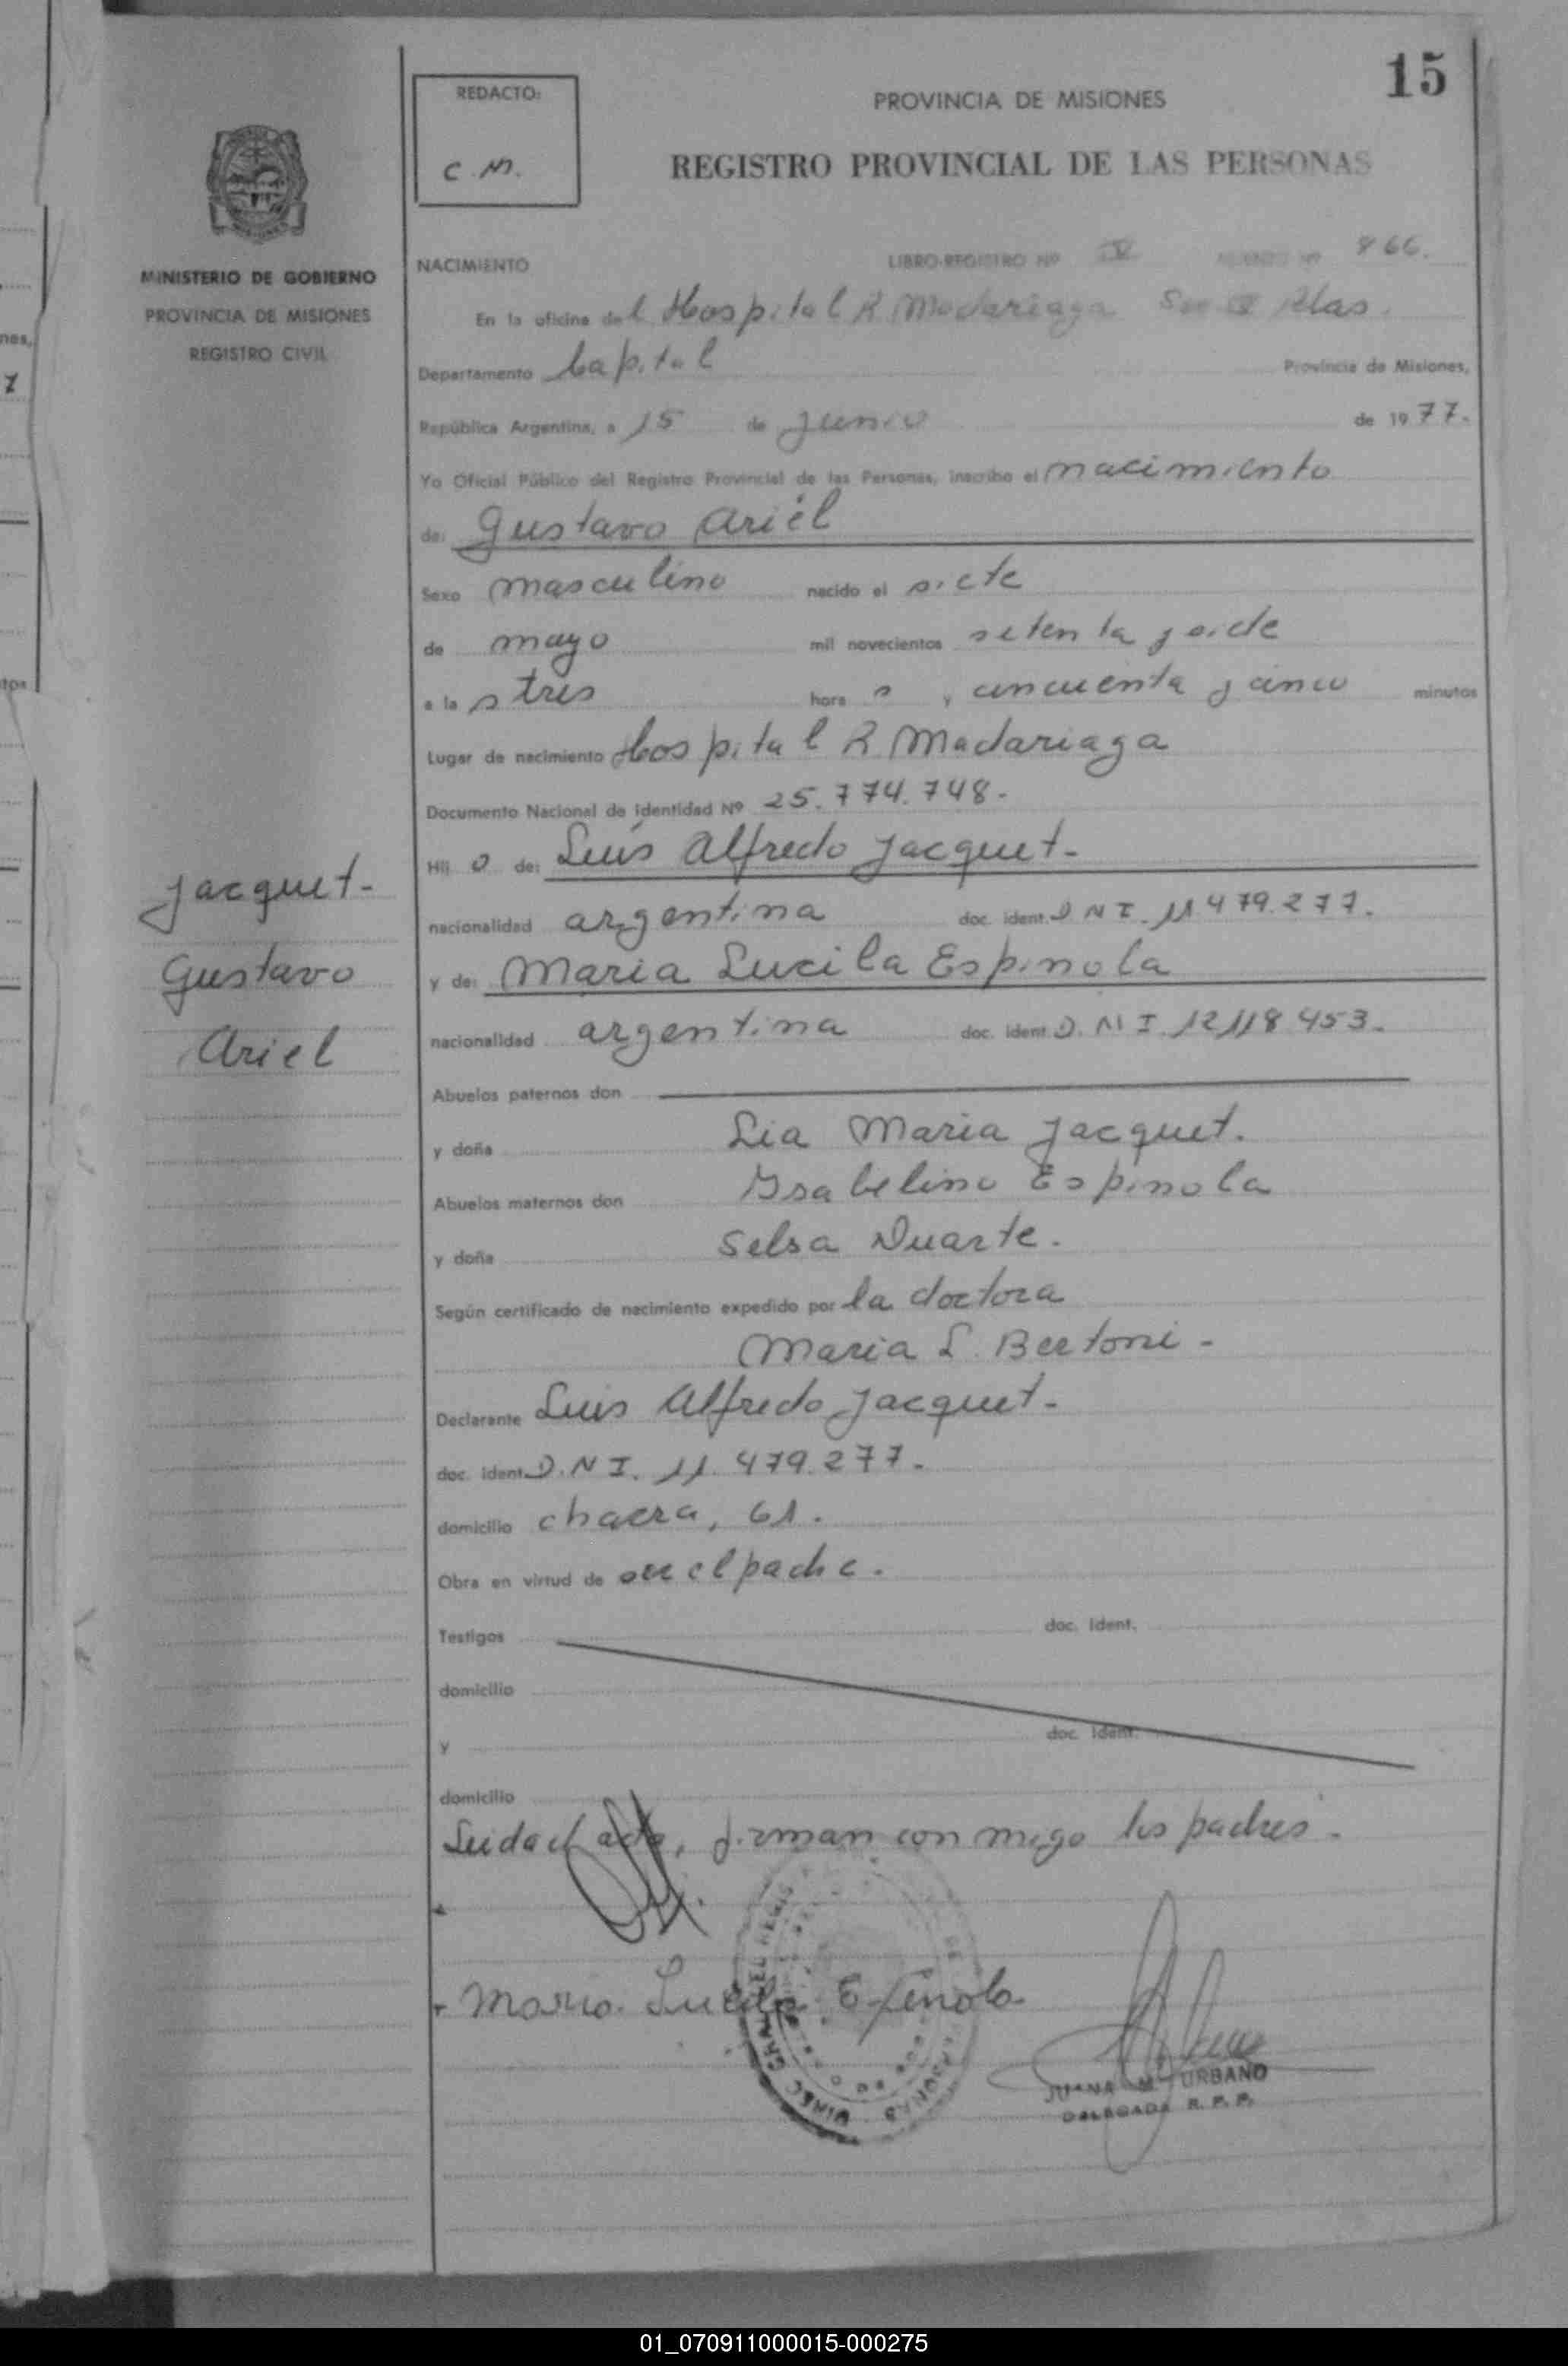 15
REDACTO:
C.M.
PROVINCIA DE MISIONES
REGISTRO PROVINCIAL DE LAS PERSONAS
MINISTERIO DE GOBIERNO
PROVINCIA DE MISIONES
REGISTRO CIVIL
NACIMIENTO LIBRO-REGISTRO Nº IV 866.
En la oficina del Hospital R Madariaga Pdas.
Departamento Capital Provincia de Misiones,
República Argentina, a 15 de junio de 1977.
Yo Oficial Público del Registro Provincial de las Personas, inscribo el nacimiento
de: Gustavo Ariel
Sexo masculino nacido el siete
de mayo mil novecientos setenta y siete
a las tres horas y cincuenta y cinco minutos
Lugar de nacimiento Hospital R Madariaga
Documento Nacional de Identidad Nº 25.774.748.-
Hijo de: Luis Alfredo Jacquet-
nacionalidad argentina doc. ident. D N I. 11 479.277.
y de: Maria Lucila Espinola
nacionalidad argentina doc. ident. D. N I. 12118 453.-
Jacquet-
Gustavo
Ariel
Abuelos paternos don
y doña Lia Maria Jacquet.
Abuelos maternos don Isabelino Espinola
y doña Selsa Duarte.
Según certificado de nacimiento expedido por la doctora
Maria L. Bertoni-
Declarante Luis Alfredo Jacquet-
doc. ident. D. N I. 11. 479.277.-
domicilio chacra, 61.
Obra en virtud de ser el padre.
Testigos doc. Ident.
domicilio
y doc. Ident.
domicilio
Leida el acta, firman con migo los padres.-
Maria Lucila Espinola
JUANA M. URBANO
DELEGADA R. P. P.
01_070911000015-000275